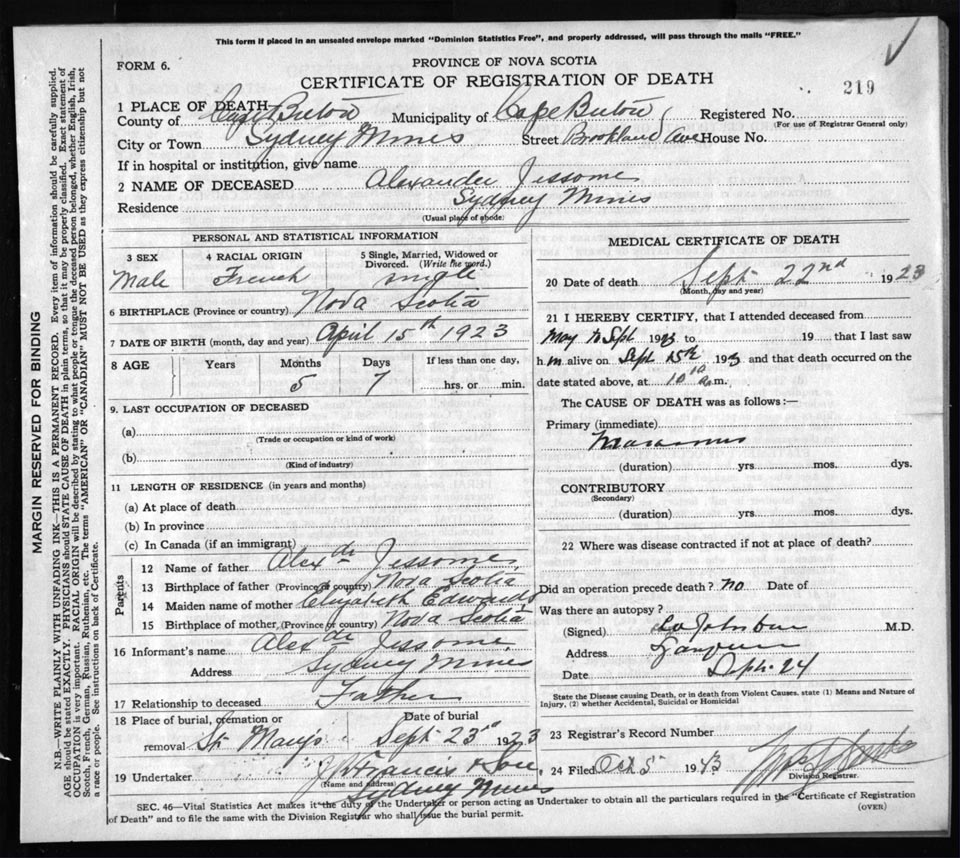 This form if placed in an unsealed envelope marked "Dominion Statistics Free", and properly addressed, will pass through the mails "FREE."
FORM 6.
PROVINCE OF NOVA SCOTIA
CERTIFICATE OF REGISTRATION OF DEATH
219
1 PLACE OF DEATH
County of Cape Breton Municipality of Cape Breton Registered No.
(For use of Registrar General only)
City or Town Sydney Mines Street Brookland Ave House No.
If in hospital or institution, give name
2 NAME OF DECEASED Alexander Jessome
Residence Sydney Mines
(Usual place of abode)
PERSONAL AND STATISTICAL INFORMATION
3 SEX 4 RACIAL ORIGIN 5 Single, Married, Widowed or
Divorced. (Write the word.)
Male French single
6 BIRTHPLACE (Province or country) Nova Scotia
7 DATE OF BIRTH (month, day and year) April 15th 1923
8 AGE Years Months Days If less than one day,
5 7 hrs. or min.
9. LAST OCCUPATION OF DECEASED
(a)
(Trade or occupation or kind of work)
(b)
(Kind of industry)
11 LENGTH OF RESIDENCE (in years and months)
(a) At place of death
(b) In province
(c) In Canada (if an immigrant)
Parents
12 Name of father Alexdr Jessome
13 Birthplace of father (Province or country) Nova Scotia
14 Maiden name of mother Elizabeth Edwards
15 Birthplace of mother (Province or country) Nova Scotia
16 Informant's name Alexdr Jessome
Address Sydney Mines
17 Relationship to deceased Father
18 Place of burial, cremation or Date of burial
removal St Mary's Sept 23rd 1923
19 Undertaker J H Francis & Son
(Name and address) Sydney Mines
MEDICAL CERTIFICATE OF DEATH
20 Date of death Sept 22nd 1923
(Month, day and year)
21 I HEREBY CERTIFY, that I attended deceased from
May to Sept 1923 to 19 that I last saw
h m alive on Sept 15th 1923 and that death occurred on the
date stated above, at 10 a.m.
The CAUSE OF DEATH was as follows:—
Primary (immediate)
Marasmus
(duration) yrs. mos. dys.
CONTRIBUTORY
(Secondary)
(duration) yrs. mos. dys.
22 Where was disease contracted if not at place of death?
Did an operation precede death? no Date of
Was there an autopsy?
(Signed) M.D.
Address
Date Sept. 24
State the Disease causing Death, or in death from Violent Causes, state (1) Means and Nature of
Injury, (2) whether Accidental, Suicidal or Homicidal
23 Registrar's Record Number
24 Filed Oct 5 1923
Division Registrar.
SEC. 46—Vital Statistics Act makes it the duty of the Undertaker or person acting as Undertaker to obtain all the particulars required in the "Certificate of Registration
of Death" and to file the same with the Division Registrar who shall issue the burial permit.
(OVER)
MARGIN RESERVED FOR BINDING
N.B.—WRITE PLAINLY WITH UNFADING INK—THIS IS A PERMANENT RECORD. Every item of information should be carefully supplied.
AGE should be stated EXACTLY. PHYSICIANS should STATE CAUSE OF DEATH in plain terms, so that it may be properly classified. Exact statement of
OCCUPATION is very important. RACIAL ORIGIN will be described by stating to what people or tongue the deceased person belonged, whether English, Irish,
Scotch, French, German, Russian, Ruthenian, etc. The terms "AMERICAN" OR "CANADIAN" MUST NOT BE USED as they express citizenship but not
a race or people. See instructions on back of Certificate.